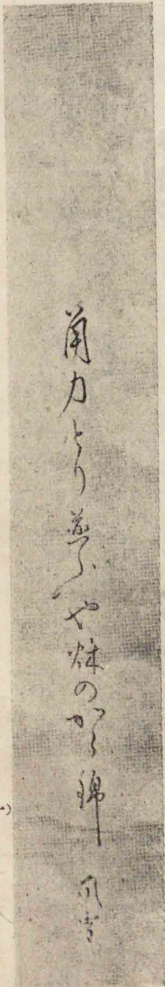 角力とり並ふや秋のから錦　嵐雪